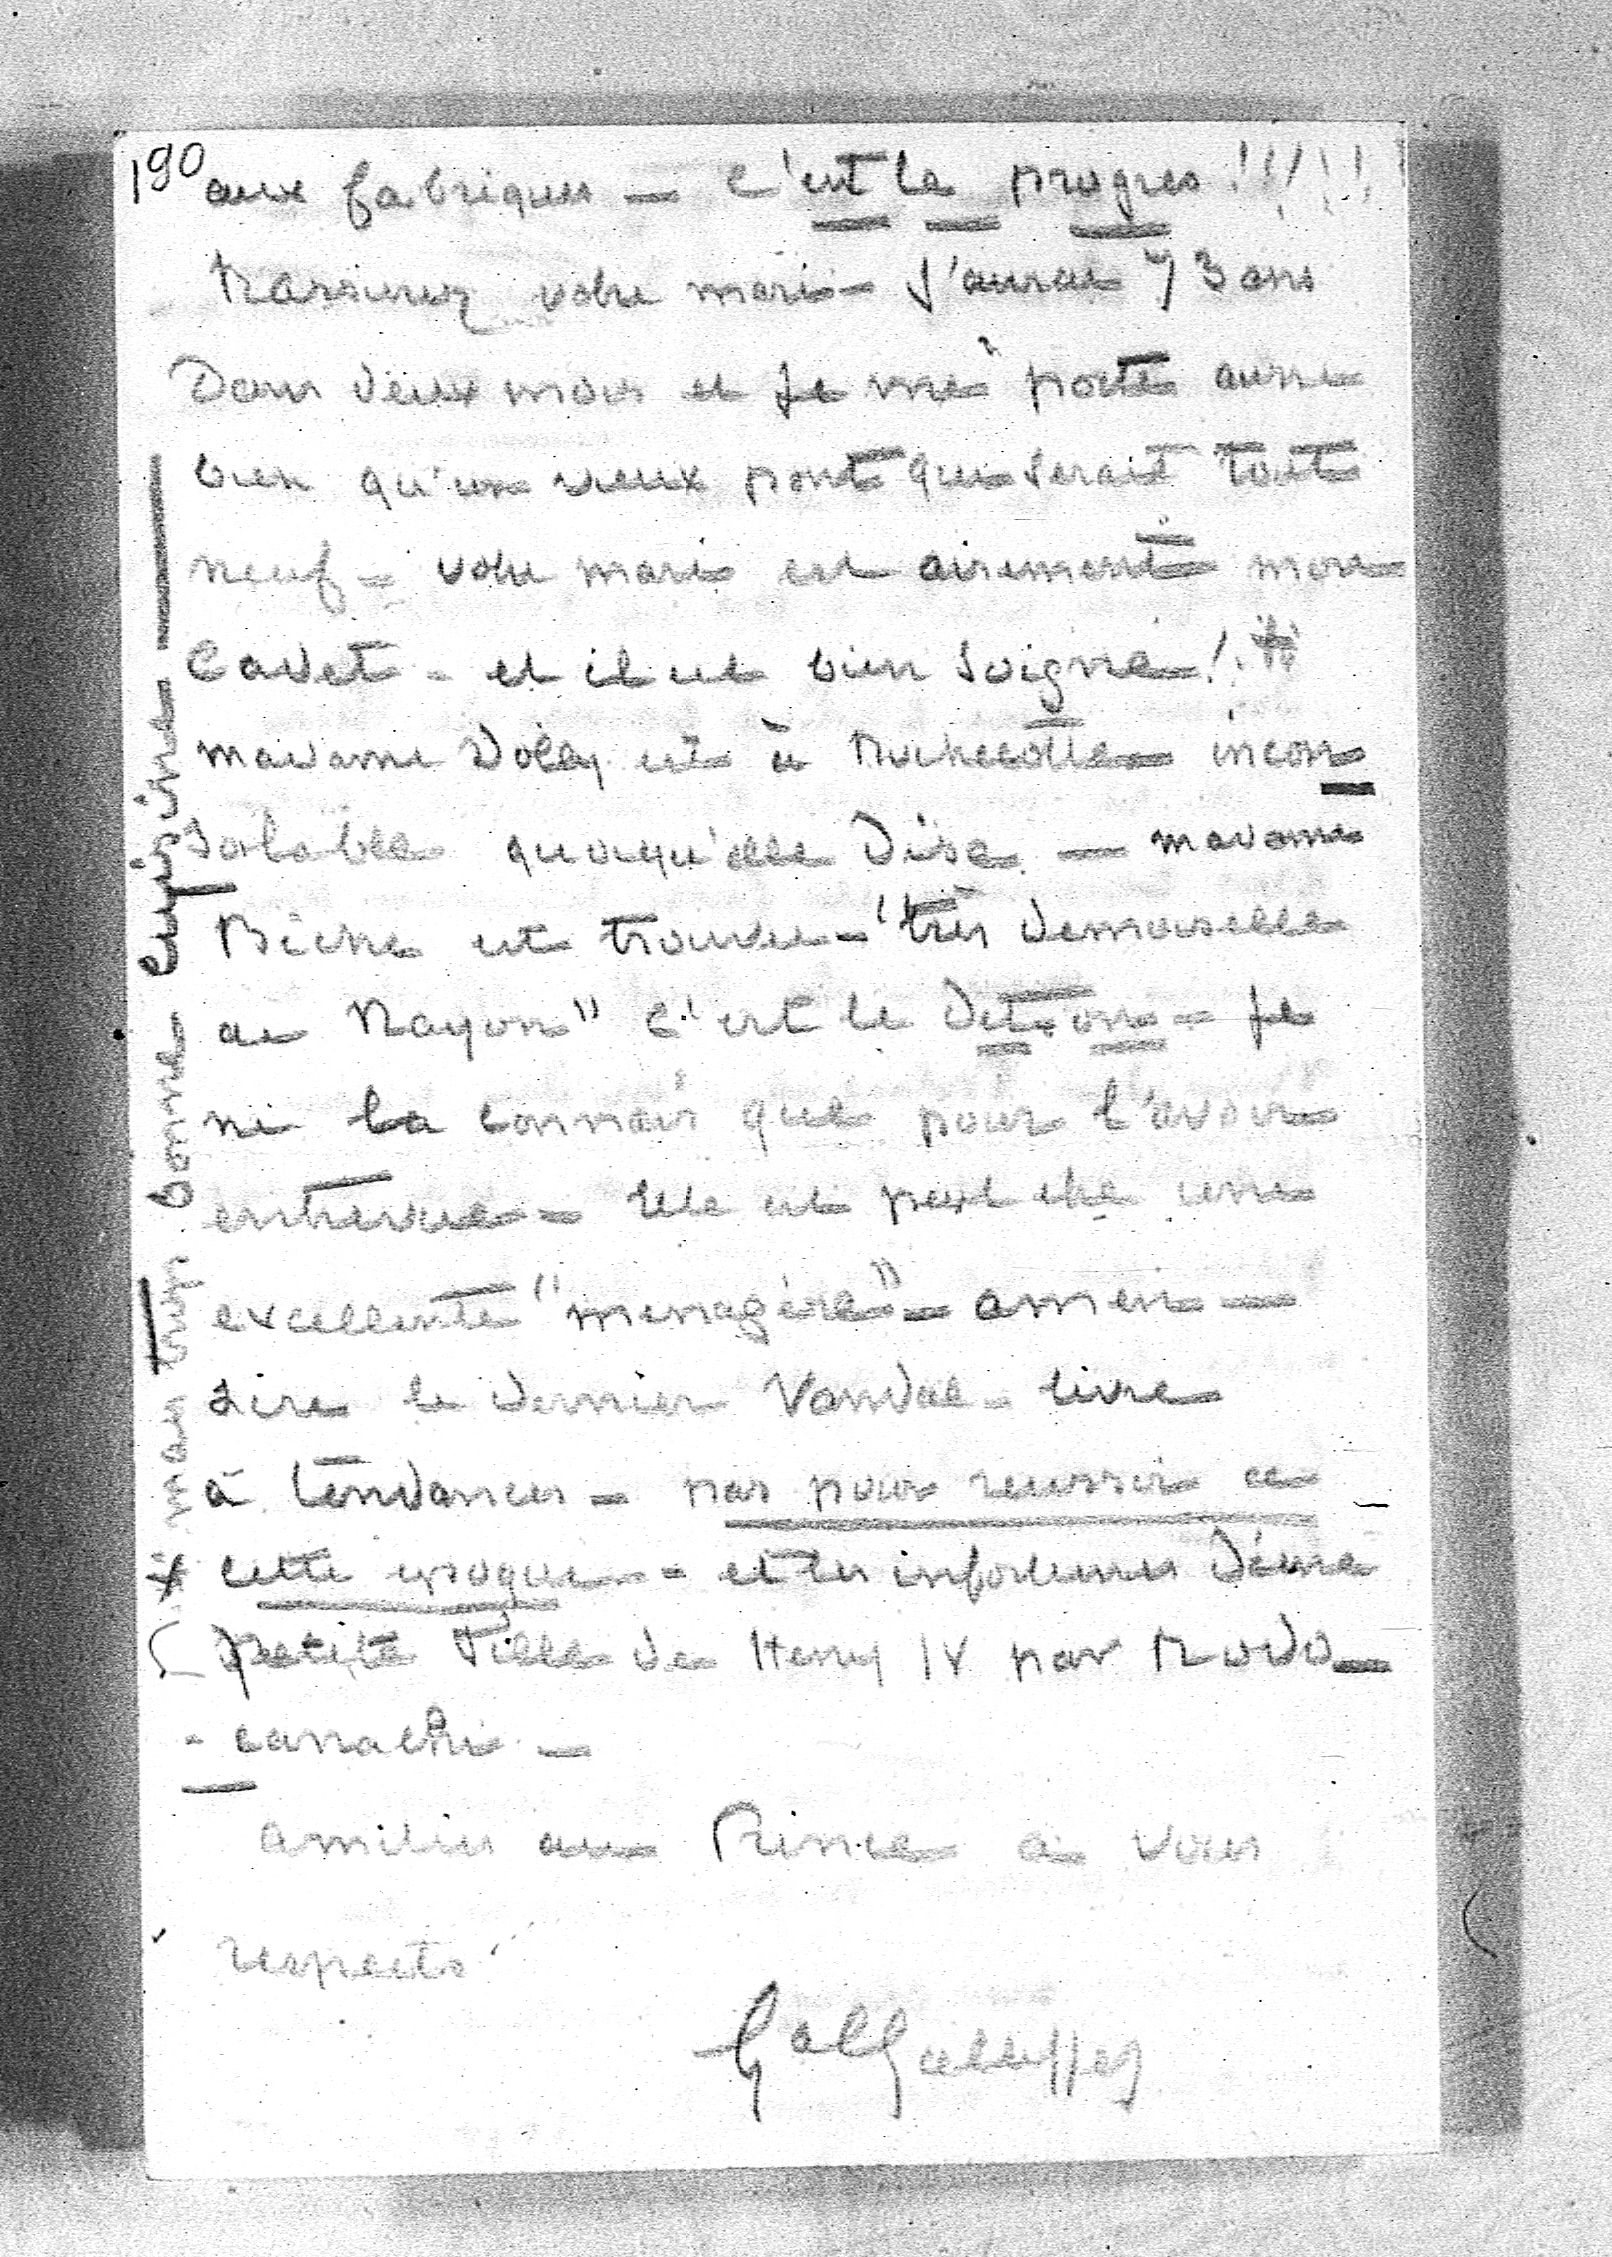 190
aux fabriques — c'est le progres !!!!!!
Rassurez votre mari — J'aurai 73 ans
Dans deux mois et je me porte aussi
bien qu'un vieux pont qui serait tout
neuf — votre mari est aisement mon
Cadet — et il est bien soigné !
madame Dolly est à Rochecotte — incon
solable quoiqu'elle dise — madame
est trouvée — "très demoiselle
de Rayon" C'est le Dit-on — Je
ne la connais que pour l'avoir
entrevue — Elle est peut etre une
excellente "menagère" — amen —
Lire le dernier Vandal — livre
à tendances — pas pour reussir a
cette epoque — et les infortunes d'une
petite fille de Henry IV par Rodo
- canachi —
amitiés au Prince à vous
respects
Gal Galliffet
mais trop bonne cuisine